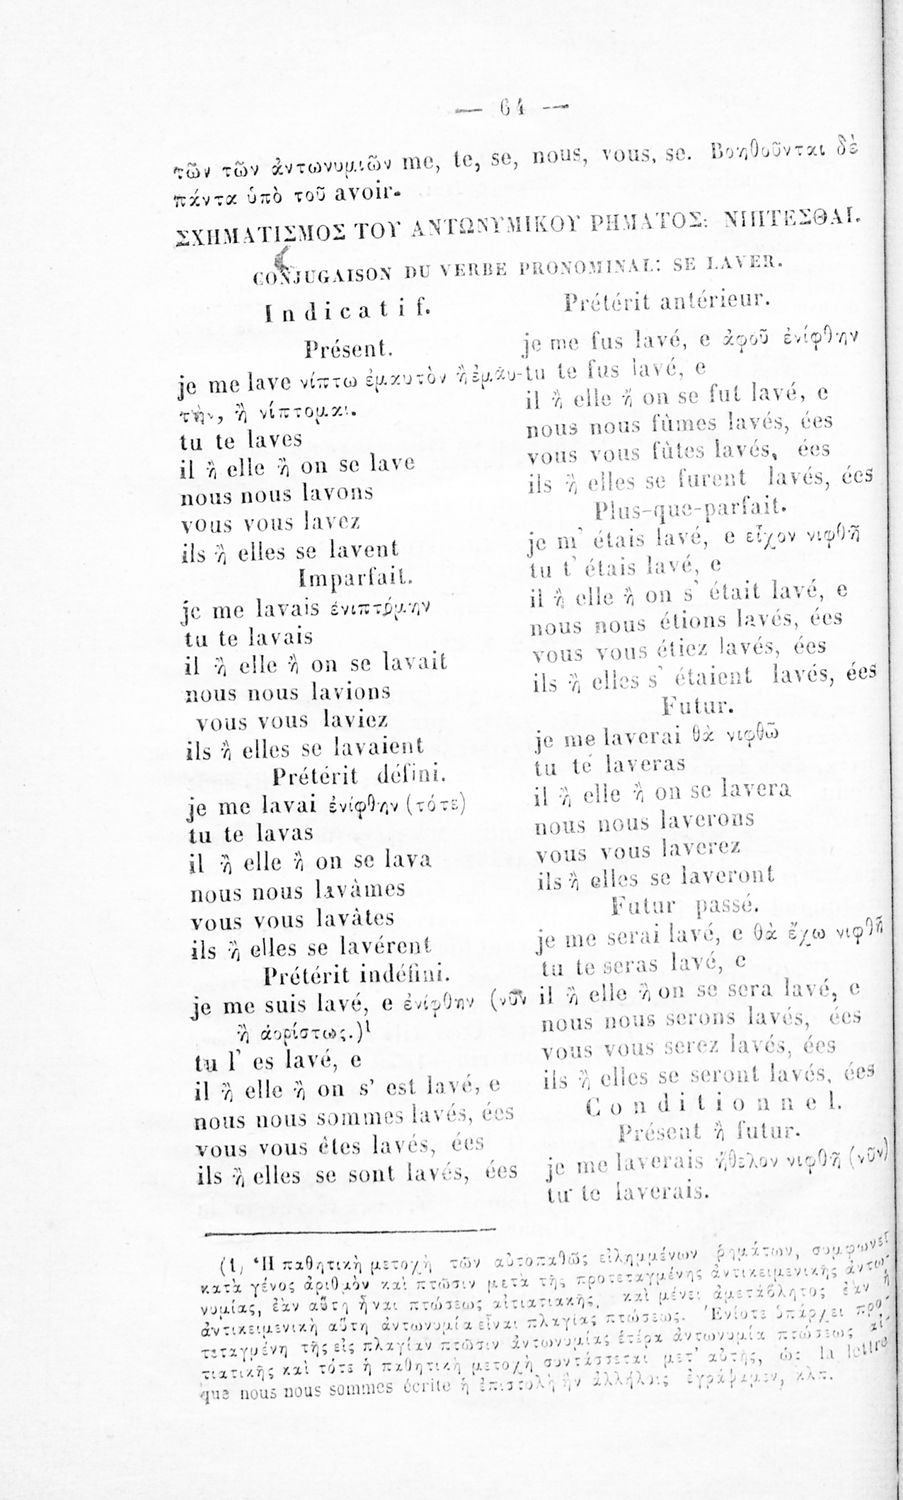 — 64 —
τῶν τῶν ἀντωνυμιῶν me, te, se, nous, vous, se. Βοηθοῦνται δὲ
πάντα ὑπὸ τοῦ avoir.
ΣΧΗΜΑΤΙΣΜΟΣ ΤΟΥ ΑΝΤΩΝΥΜΙΚΟΥ ΡΗΜΑΤΟΣ: ΝΙΠΤΕΣΘΑΙ.
CONJUGAISON DU VERBE PRONOMINAL: SE LAVER.
Indicatif.
Présent.
je me lave νίπτω ἐμαυτὸν ἢ ἐμαυ-
τὴν, ἢ νίπτομαι.
tu te laves
il ἢ elle ἢ on se lave
nous nous lavons
vous vous lavez
ils ἢ elles se lavent
Imparfait.
je me lavais ἐνιπτόμην
tu te lavais
il ἢ elle ἢ on se lavait
nous nous lavions
vous vous laviez
ils ἢ elles se lavaient
Prétérit défini.
je me lavai ἐνίφθην (τότε)
tu te lavas
il ἢ elle ἢ on se lava
nous nous lavâmes
vous vous lavâtes
ils ἢ elles se lavérent
Prétérit indéfini.
je me suis lavé, e ἐνίφθην (νῦν
ἢ ἀορίστως.)¹
tu l' es lavé, e
il ἢ elle ἢ on s' est lavé, e
nous nous sommes lavés, ées
vous vous êtes lavés, ées
ils ἢ elles se sont lavés, ées
Prétérit antérieur.
je me fus lavé, e ἀφοῦ ἐνίφθην
tu te fus lavé, e
il ἢ elle ἢ on se fut lavé, e
nous nous fûmes lavés, ées
vous vous fûtes lavés, ées
ils ἢ elles se furent lavés, ées
Plus-que-parfait.
je m' étais lavé, e εἶχον νιφθῆ
tu t' étais lavé, e
il ἢ elle ἢ on s' était lavé, e
nous nous étions lavés, ées
vous vous étiez lavés, ées
ils ἢ elles s' étaient lavés, ées
Futur.
je me laverai θὰ νιφθῶ
tu te laveras
il ἢ elle ἢ on se lavera
nous nous laverons
vous vous laverez
ils ἢ elles se laveront
Futur passé.
je me serai lavé, e θὰ ἔχω νιφθῆ
tu te seras lavé, e
il ἢ elle ἢ on se sera lavé, e
nous nous serons lavés, ées
vous vous serez lavés, ées
ils ἢ elles se seront lavés, ées
Conditionnel.
Présent ἢ futur.
je me laverais ἤθελον νιφθῆ (νῦν)
tu te laverais.
(1) Ἡ παθητικὴ μετοχὴ τῶν αὐτοπαθῶς εἰλημμένων ῥημάτων, συμφωνεῖ
κατὰ γένος ἀριθμὸν καὶ πτῶσιν μετὰ τῆς προτεταγμένης ἀντικειμενικῆς ἀντω-
νυμίας, ἐὰν αὕτη ἦναι πτώσεως αἰτιατικῆς, καὶ μένει ἀμετάβλητος ἐὰν ἡ
ἀντικειμενικὴ αὕτη ἀντωνυμία εἶναι πλαγίας πτώσεως. Ἐνίοτε ὑπάρχει προ-
τεταγμένη τῆς εἰς πλαγίαν πτῶσιν ἀντωνυμίας ἑτέρα ἀντωνυμία πτώσεως αἰ-
τιατικῆς καὶ τότε ἡ παθητικὴ μετοχὴ συντάσσεται μετ' αὐτῆς, ὡς la lettre
que nous nous sommes écrite ἡ ἐπιστολὴ ἣν ἀλλήλοις ἐγράψαμεν, κλπ.